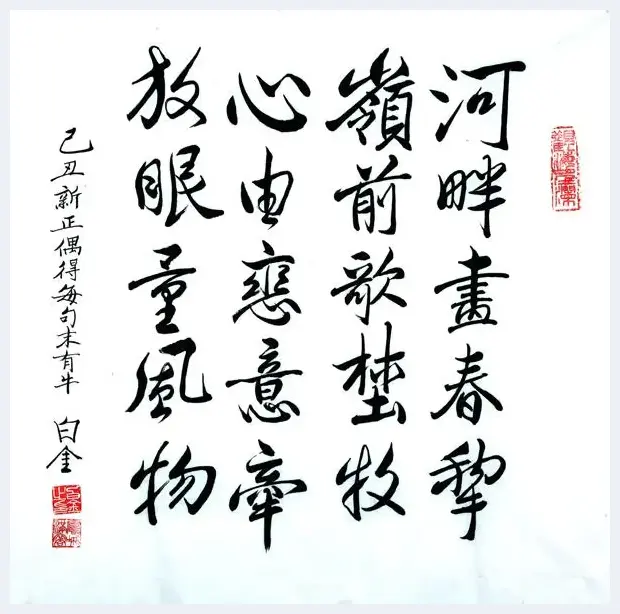 河畔畫春犂
嶺前歌埜牧
心由戀意牽
放眼量風物
己丑新正偶得每句末有牛 白金